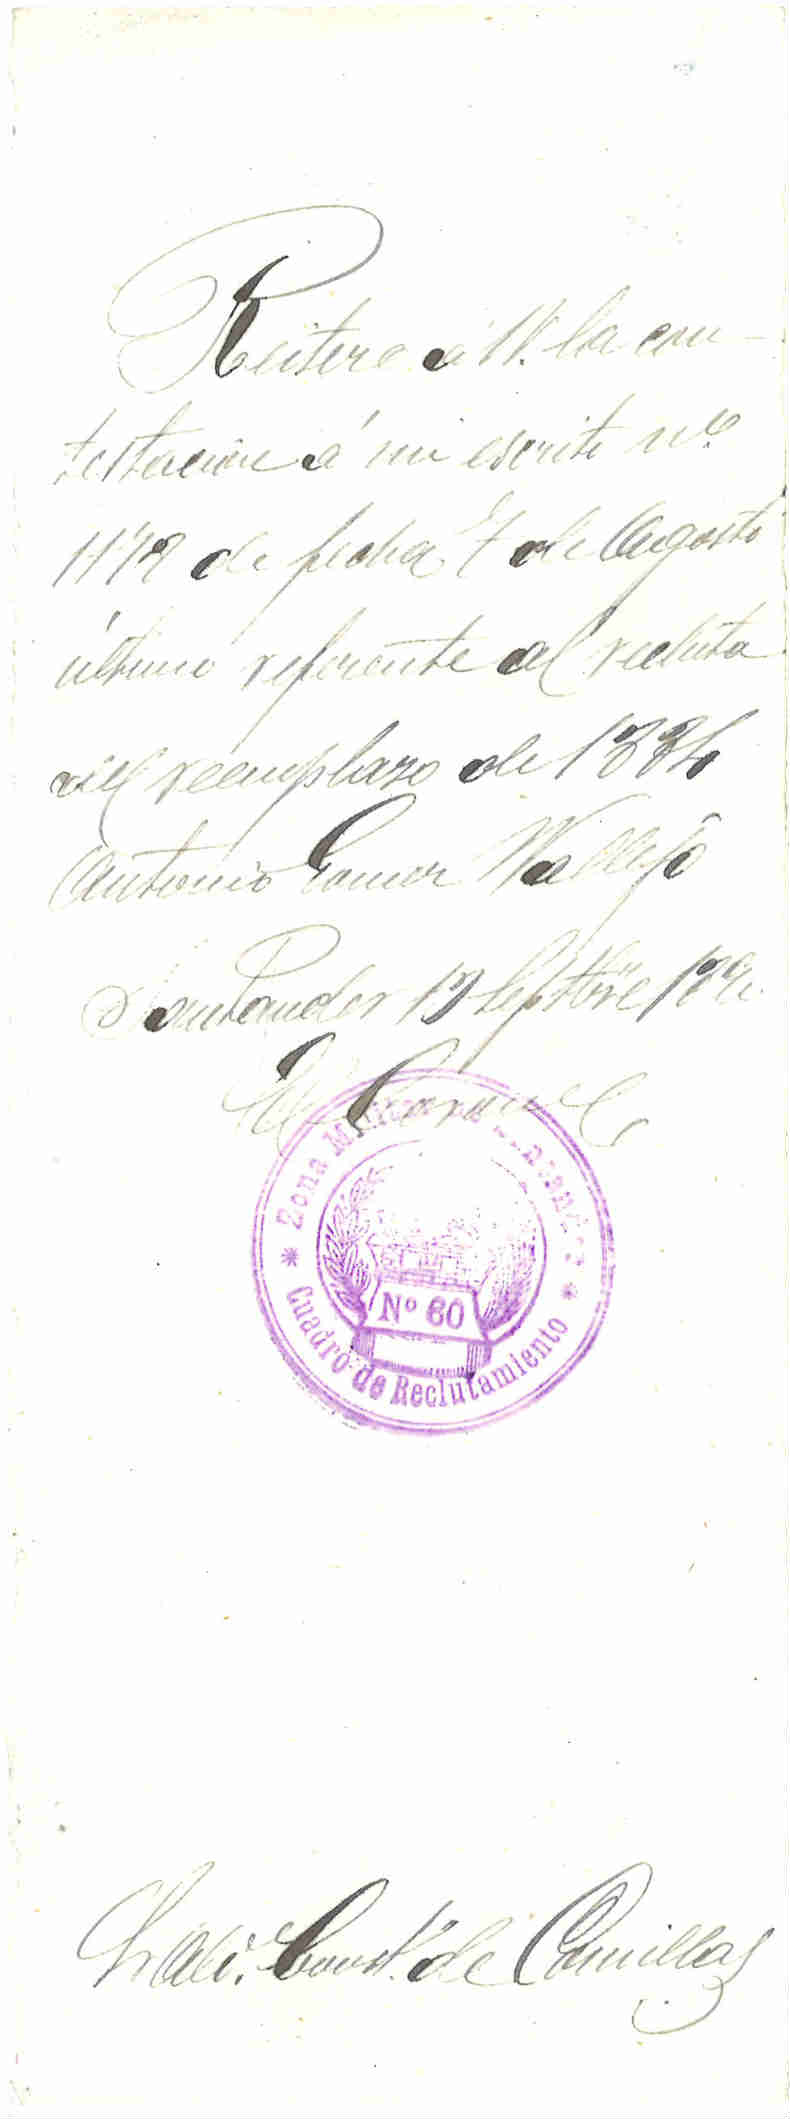 Reitero á V. la con-
testacion á mi escrito nº
1178 de fecha 7 de Agosto
último referente al recluta
del reemplazo de 1884
Antonio Gomez Vallejo
Santander 12 Septbre 189
El Coronel
Zona Militar de Santander
Nº 60
Cuadro de Reclutamiento
Alc. Const. de Comillas